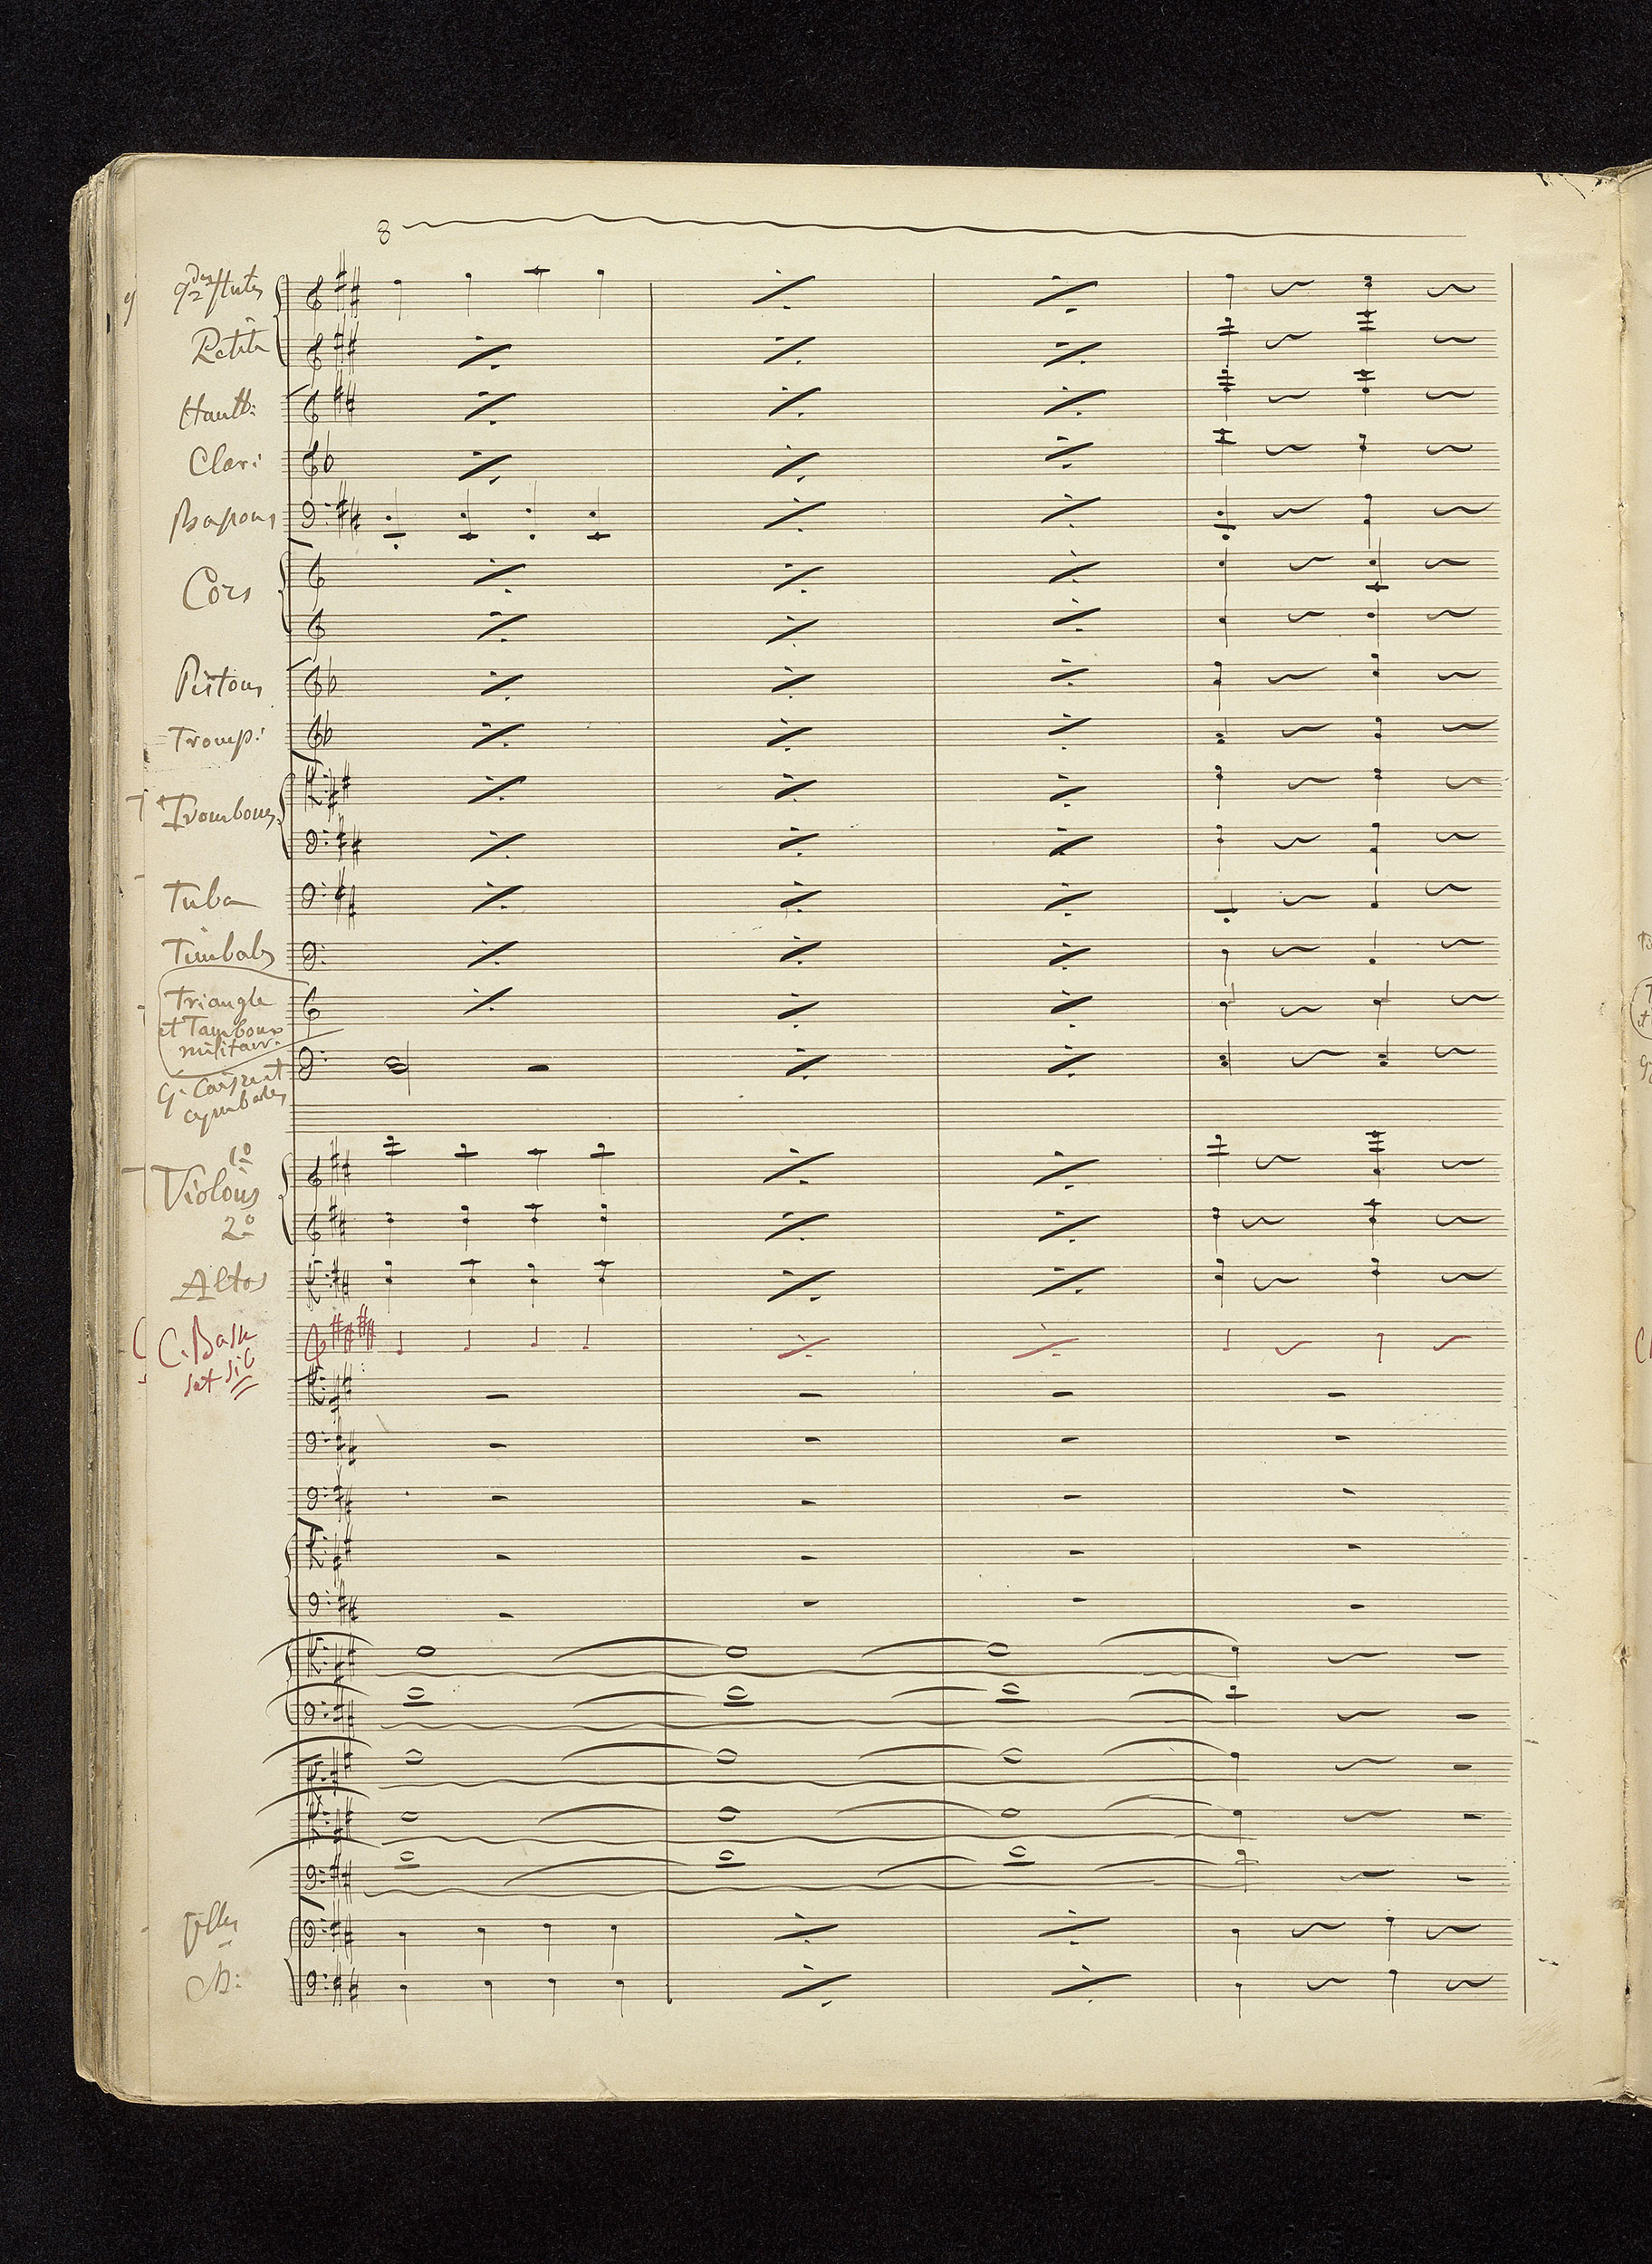 8
gdes flutes
2
Petite
Hautb:
Clari
Bassons
Cors
Pistons
Tromp:
Trombones
Tuba
Timbales
Triangle
et Tambour
militair:
gr. Caisse et
cymbales
1o
Violons
2o
Altos
C. Basse
Sax si b
Vlles
CB: